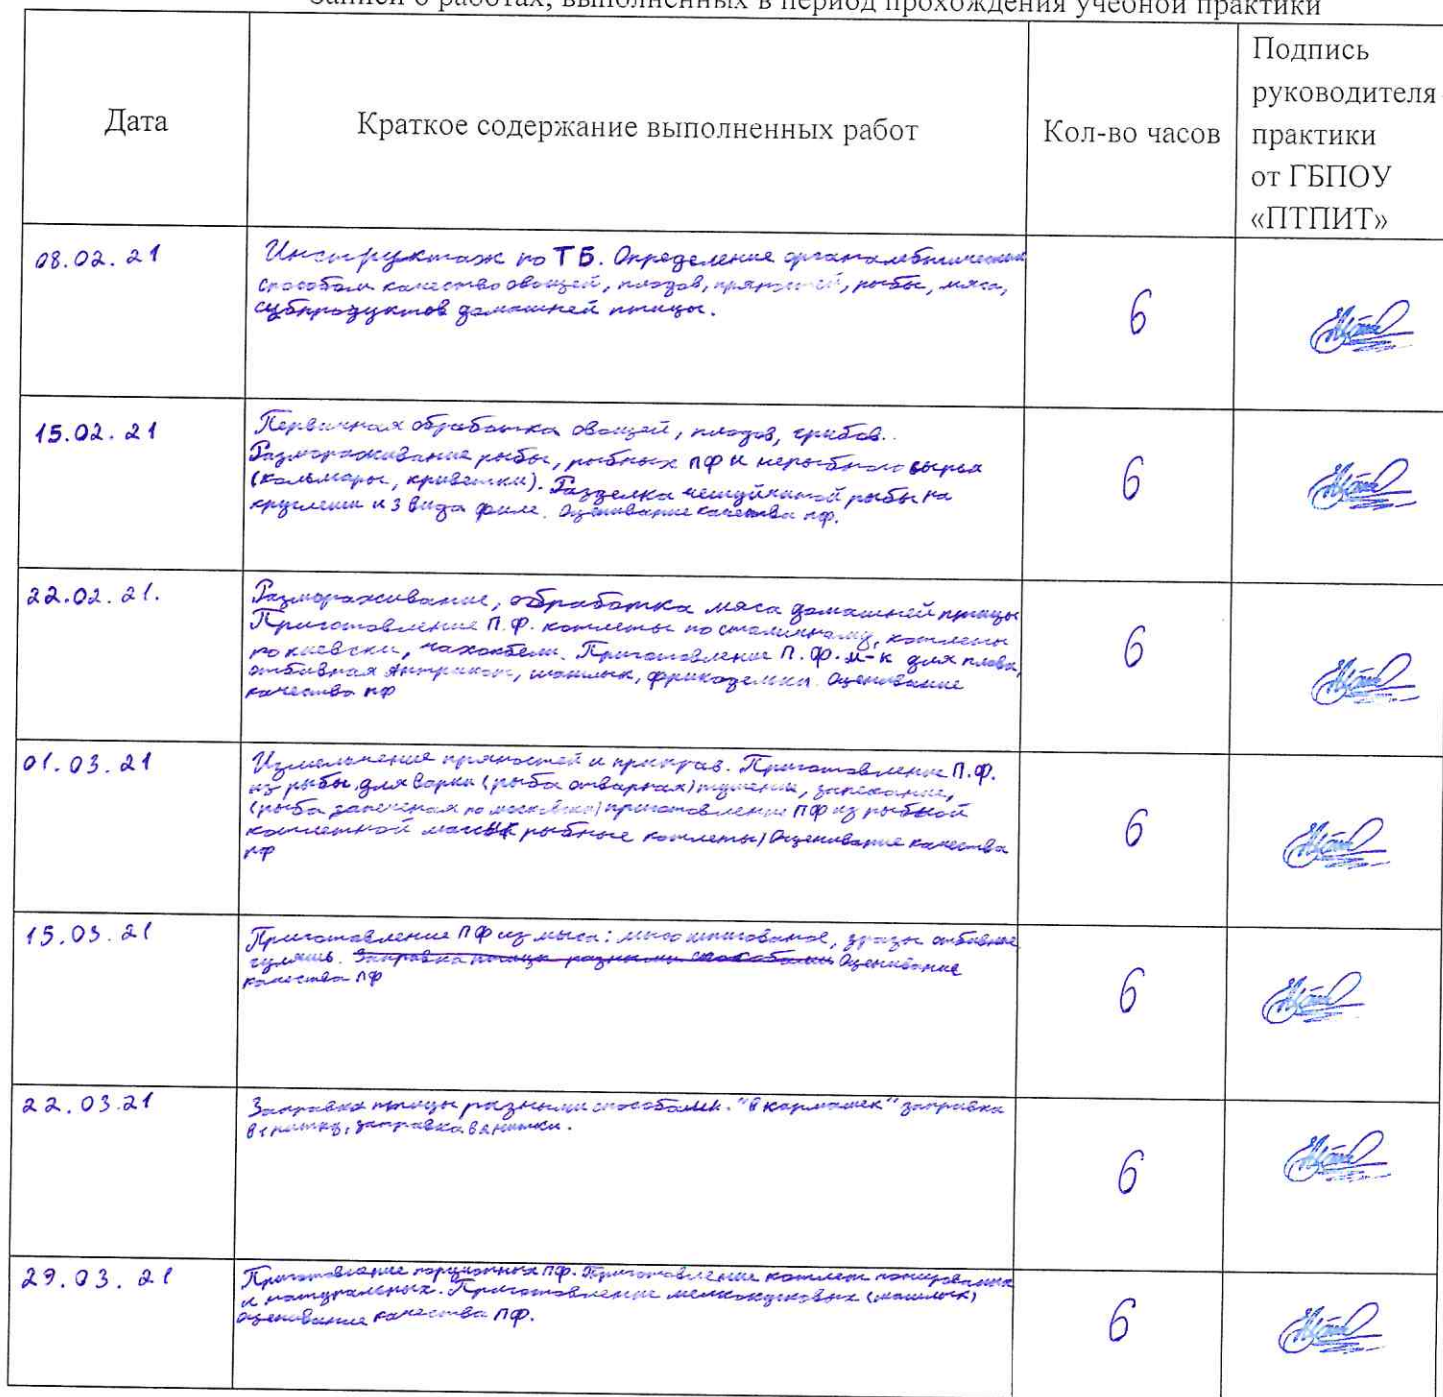 Записи о работах, выполненных в период прохождения учебной практики
Дата
Краткое содержание выполненных работ
Кол-во часов
Подпись
руководителя
практики
от ГБПОУ
«ПТПИТ»
08.02.21
Инструктаж по ТБ. Определение органолептическим
способом качество овощей, плодов, пряностей, рыбы, мяса,
субпродуктов домашней птицы.
6
15.02.21
Первичная обработка овощей, плодов, грибов.
Размораживание рыбы, рыбных ПФ и нерыбного сырья
(кальмары, креветки). Разделка чешуйчатой рыбы на
кругляши и 3 вида филе. Оценивание качества пф.
6
22.02.21.
Размораживание, обработка мяса домашней птицы
Приготовление П.Ф. котлеты по столичному, котлеты
по киевски, чахохбели. Приготовление П.Ф. м-к для плова,
отбивная Антрекот, шашлык, фрикадельки. Оценивание
качества пф
6
01.03.21
Измельчение пряностей и приправ. Приготовление П.Ф.
из рыбы для варки (рыба отварная) тушении, запекание,
(рыба запеченая по московски) приготовление ПФ из рыбной
котлетной массы рыбные котлеты) Оценивание качества
пф
6
15.03.21
Приготовление ПФ из мяса: мясо шпигованое, зразы отбивные
гуляшь. Заправка птицы разными способами Оценивание
качества ПФ
6
22.03.21
Заправка птицы разными способами. "В кармашек" заправка
в 1 нитку, заправка в 2 нитки.
6
29.03.21
Приготовление порционных ПФ. Приготовление котлет панированных
и натуральных. Приготовление мелкокусковых (шашлык)
оценивание качества ПФ.
6